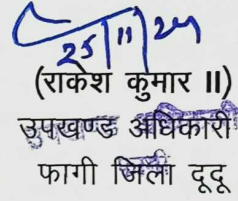 25/11/24
(राकेश कुमार II)
उपखण्ड अधिकारी
फागी जिला दूदू